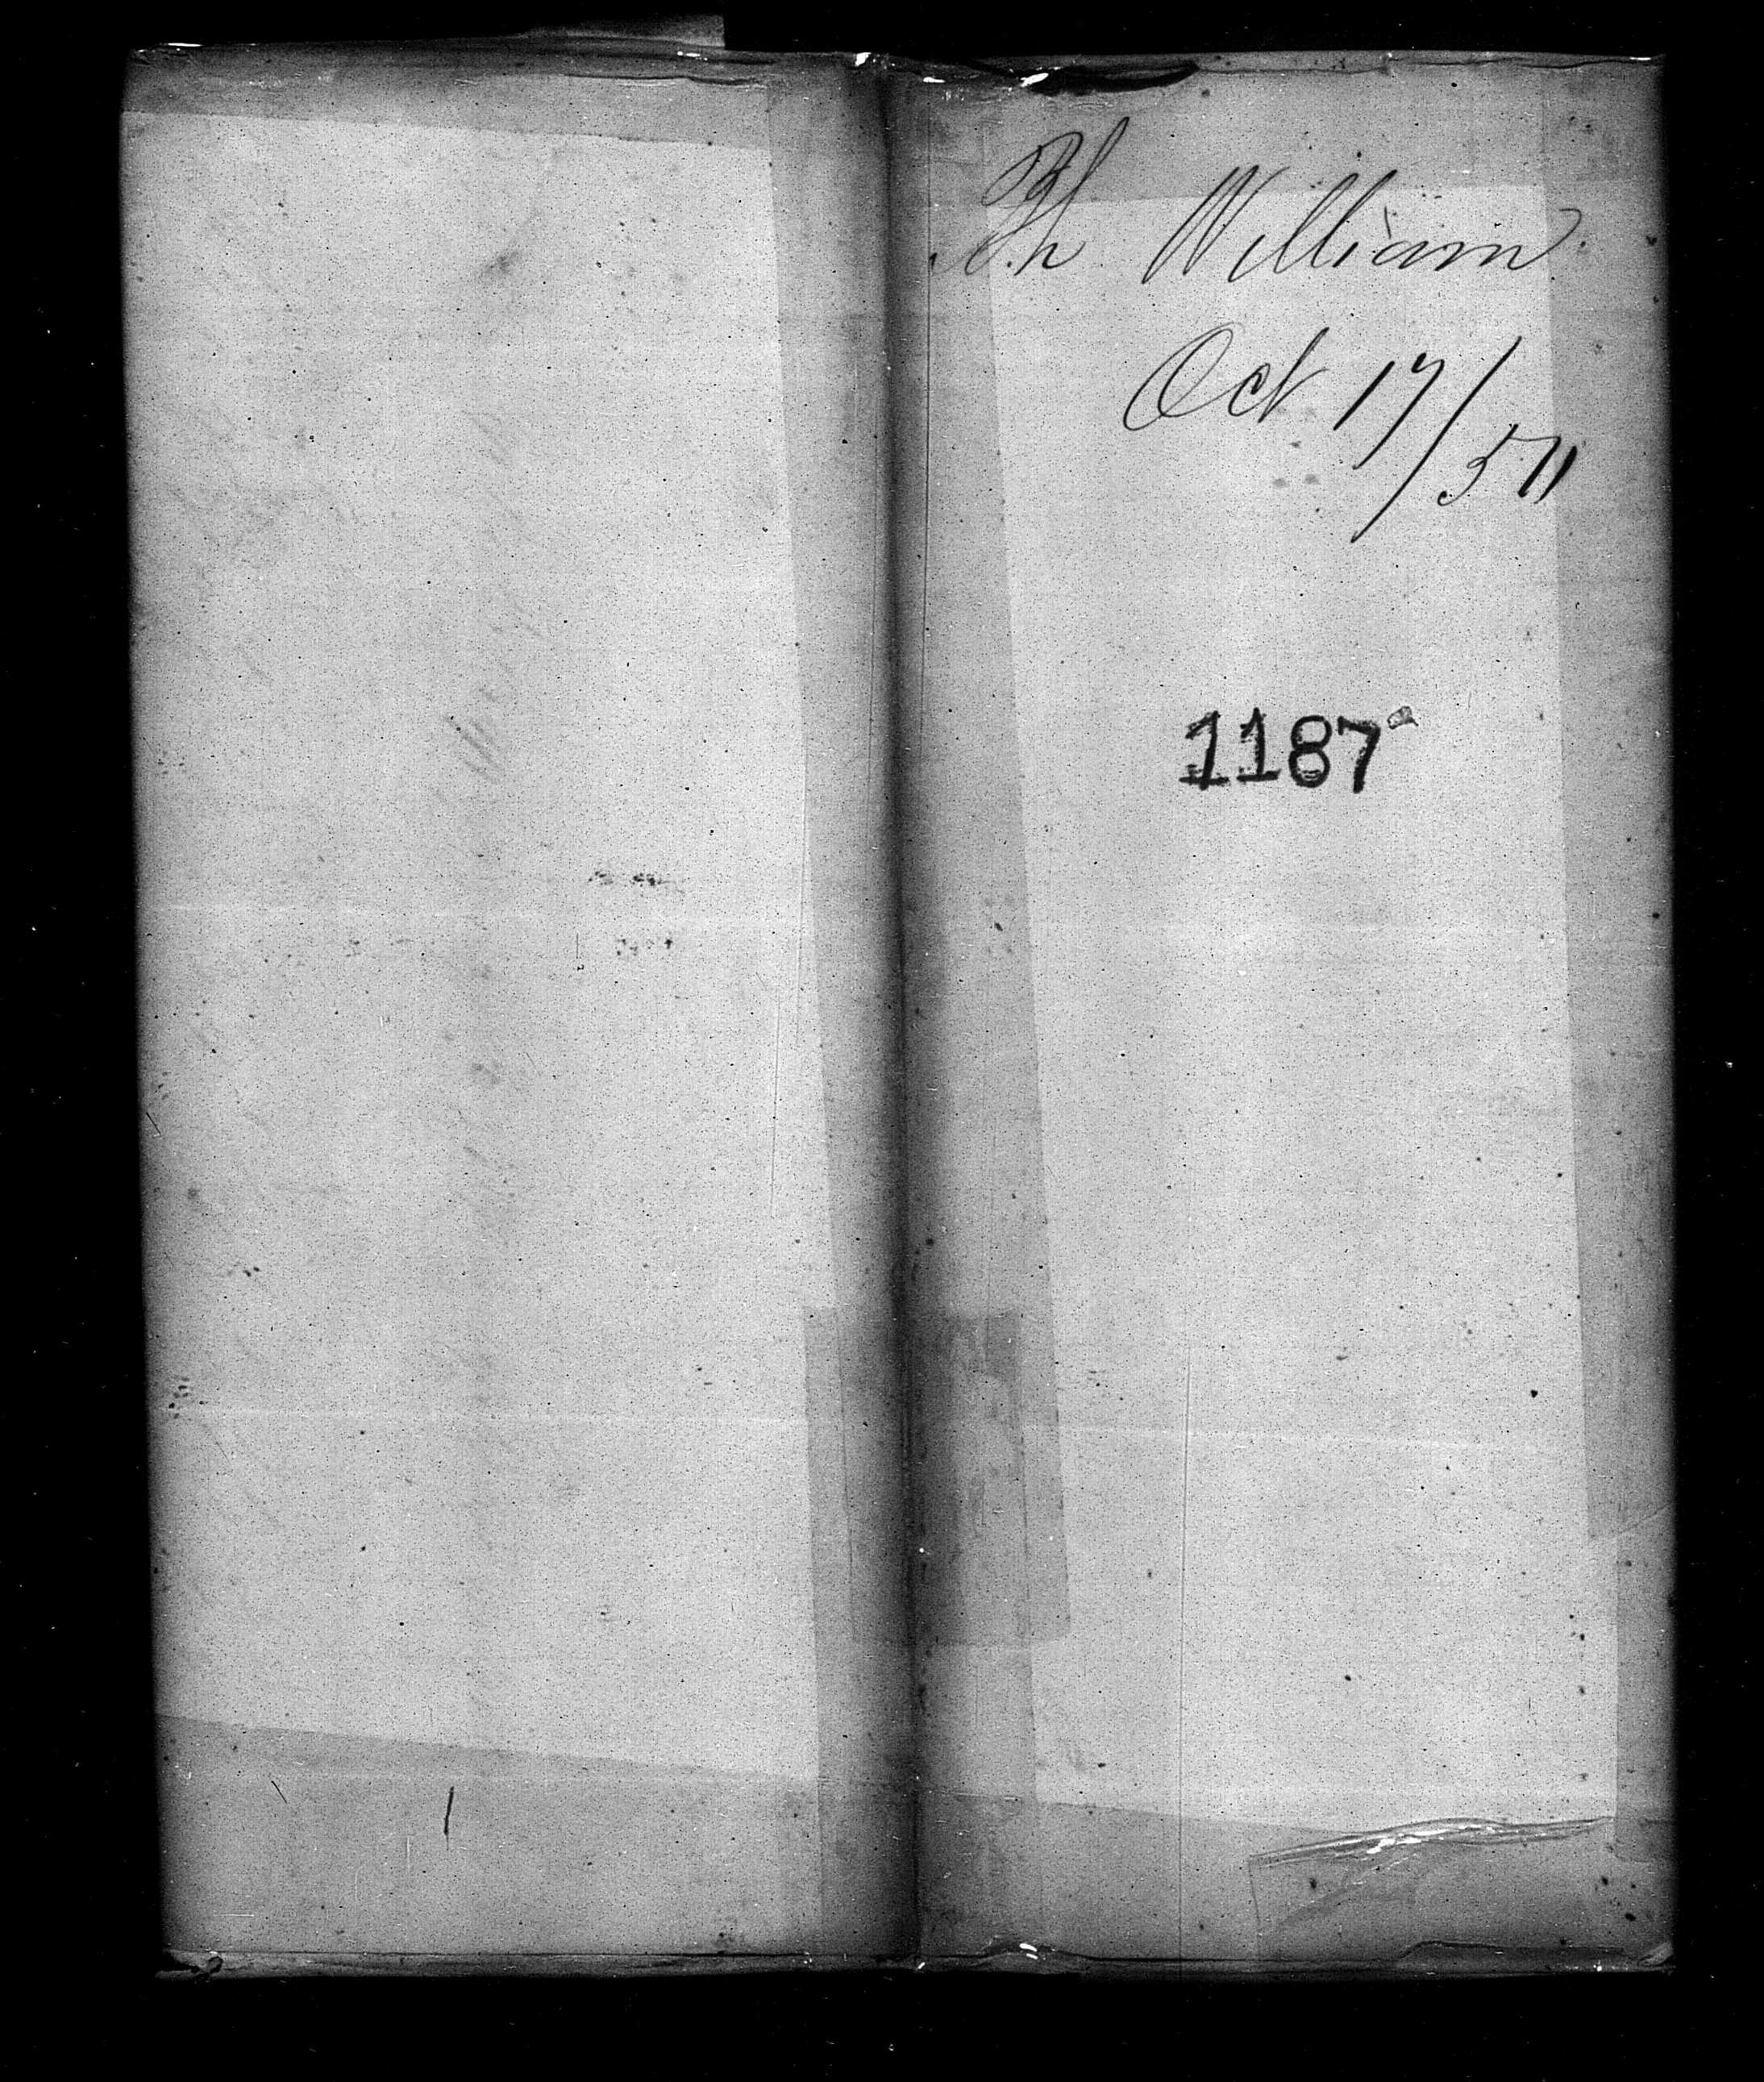 Sh William
Oct 17/54
1187